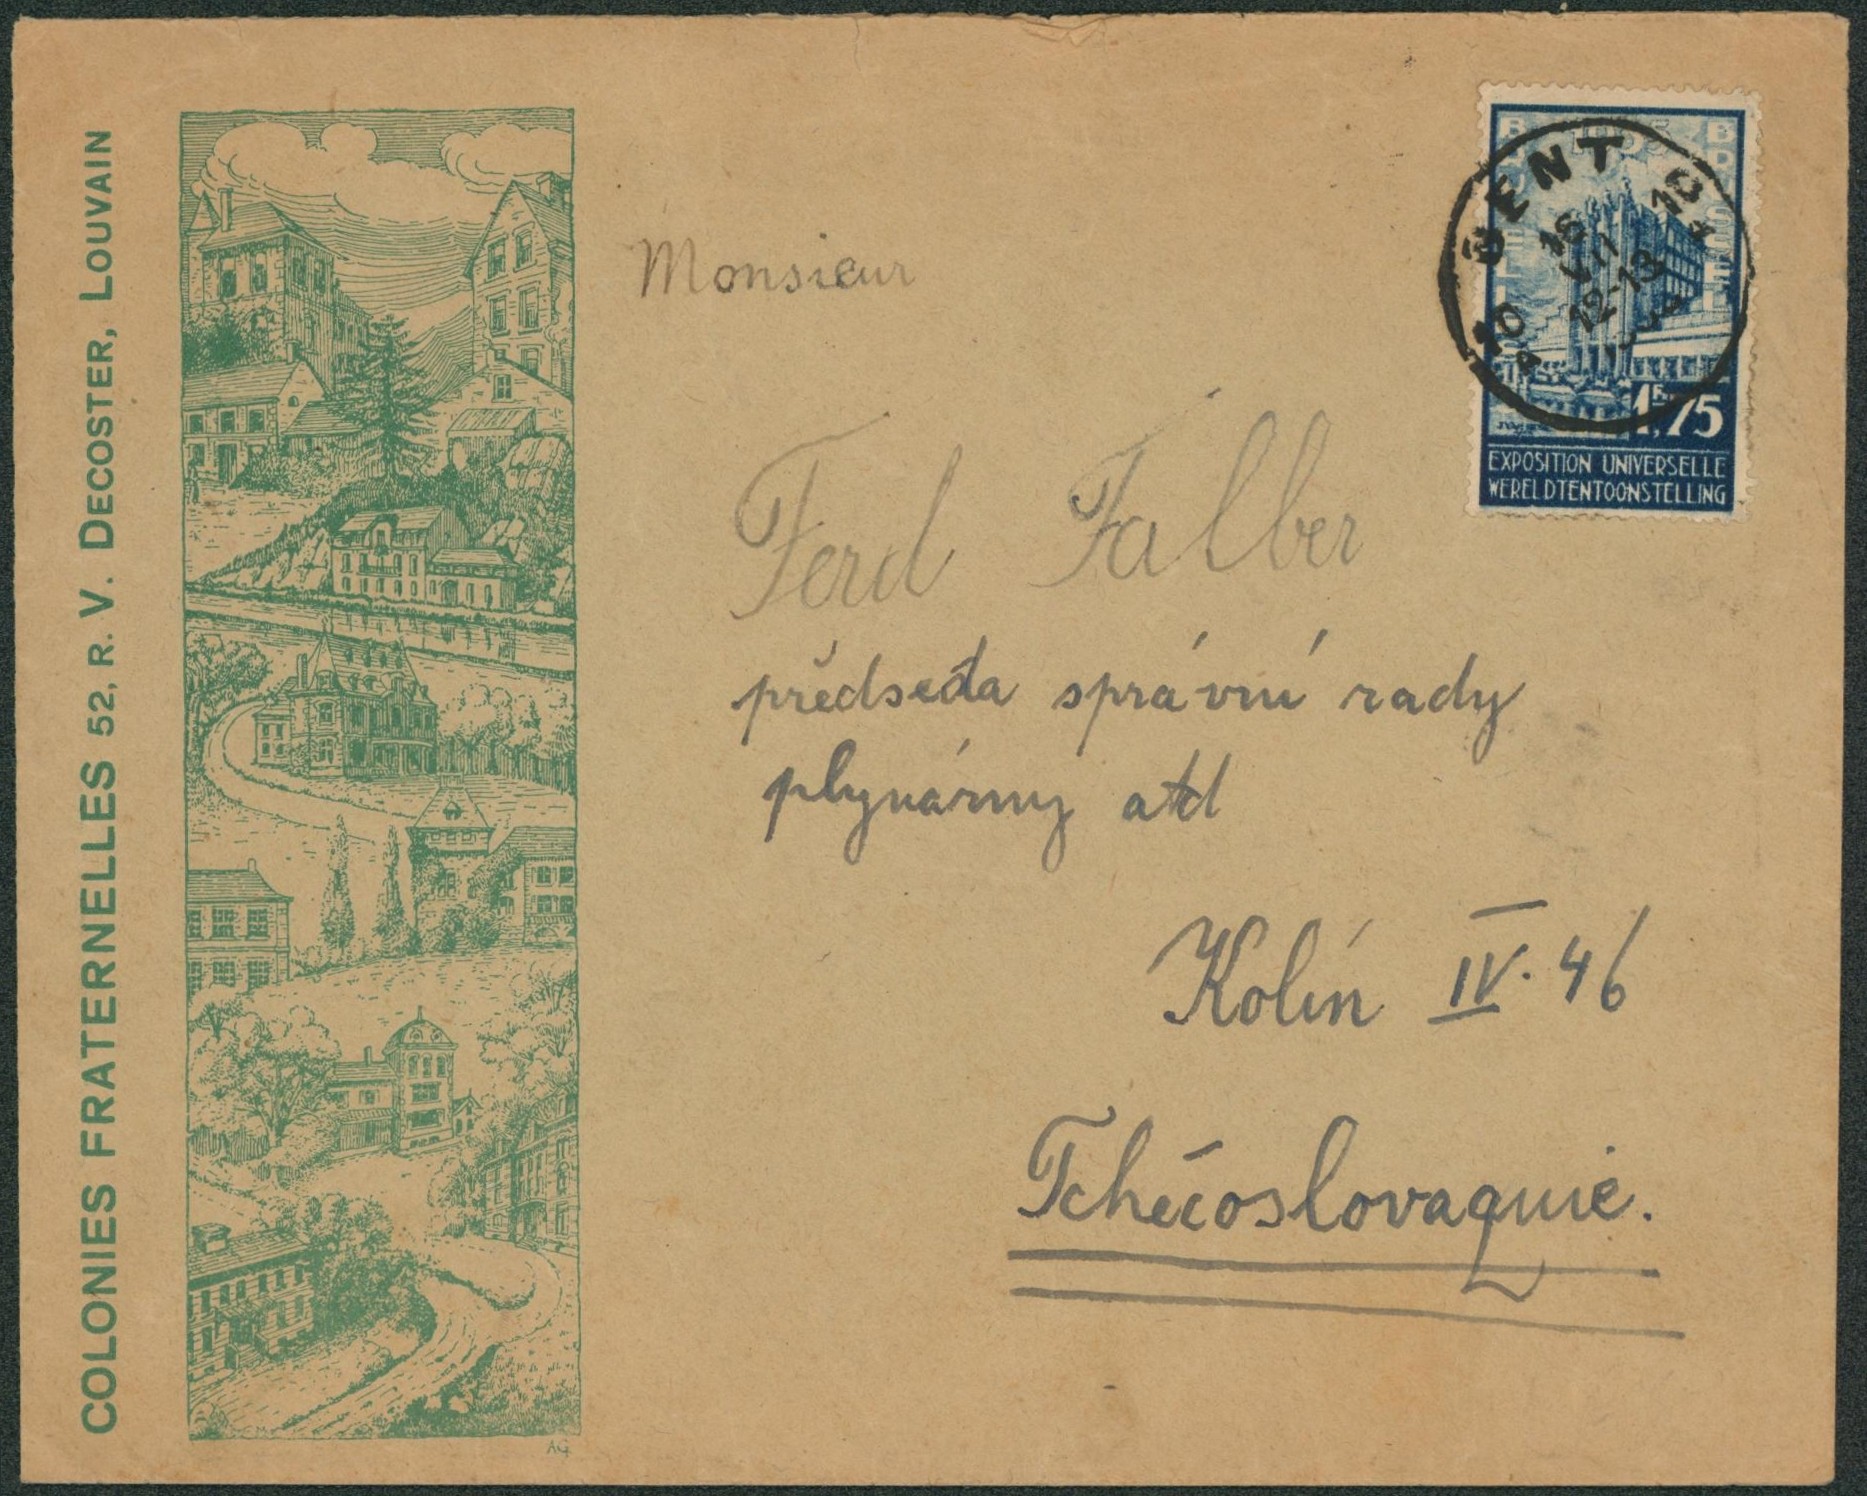 COLONIES FRATERNELLES 52, R. V. DECOSTER, LOUVAIN
AG
Monsieur
Ferd Falber
předseda správní rady
plynárny atd
Kolín IV. 46
Tchécoslovaquie.
1935
GENT
10 10
16
VII
12-13
1Fr,75
EXPOSITION UNIVERSELLE
WERELDTENTOONSTELLING